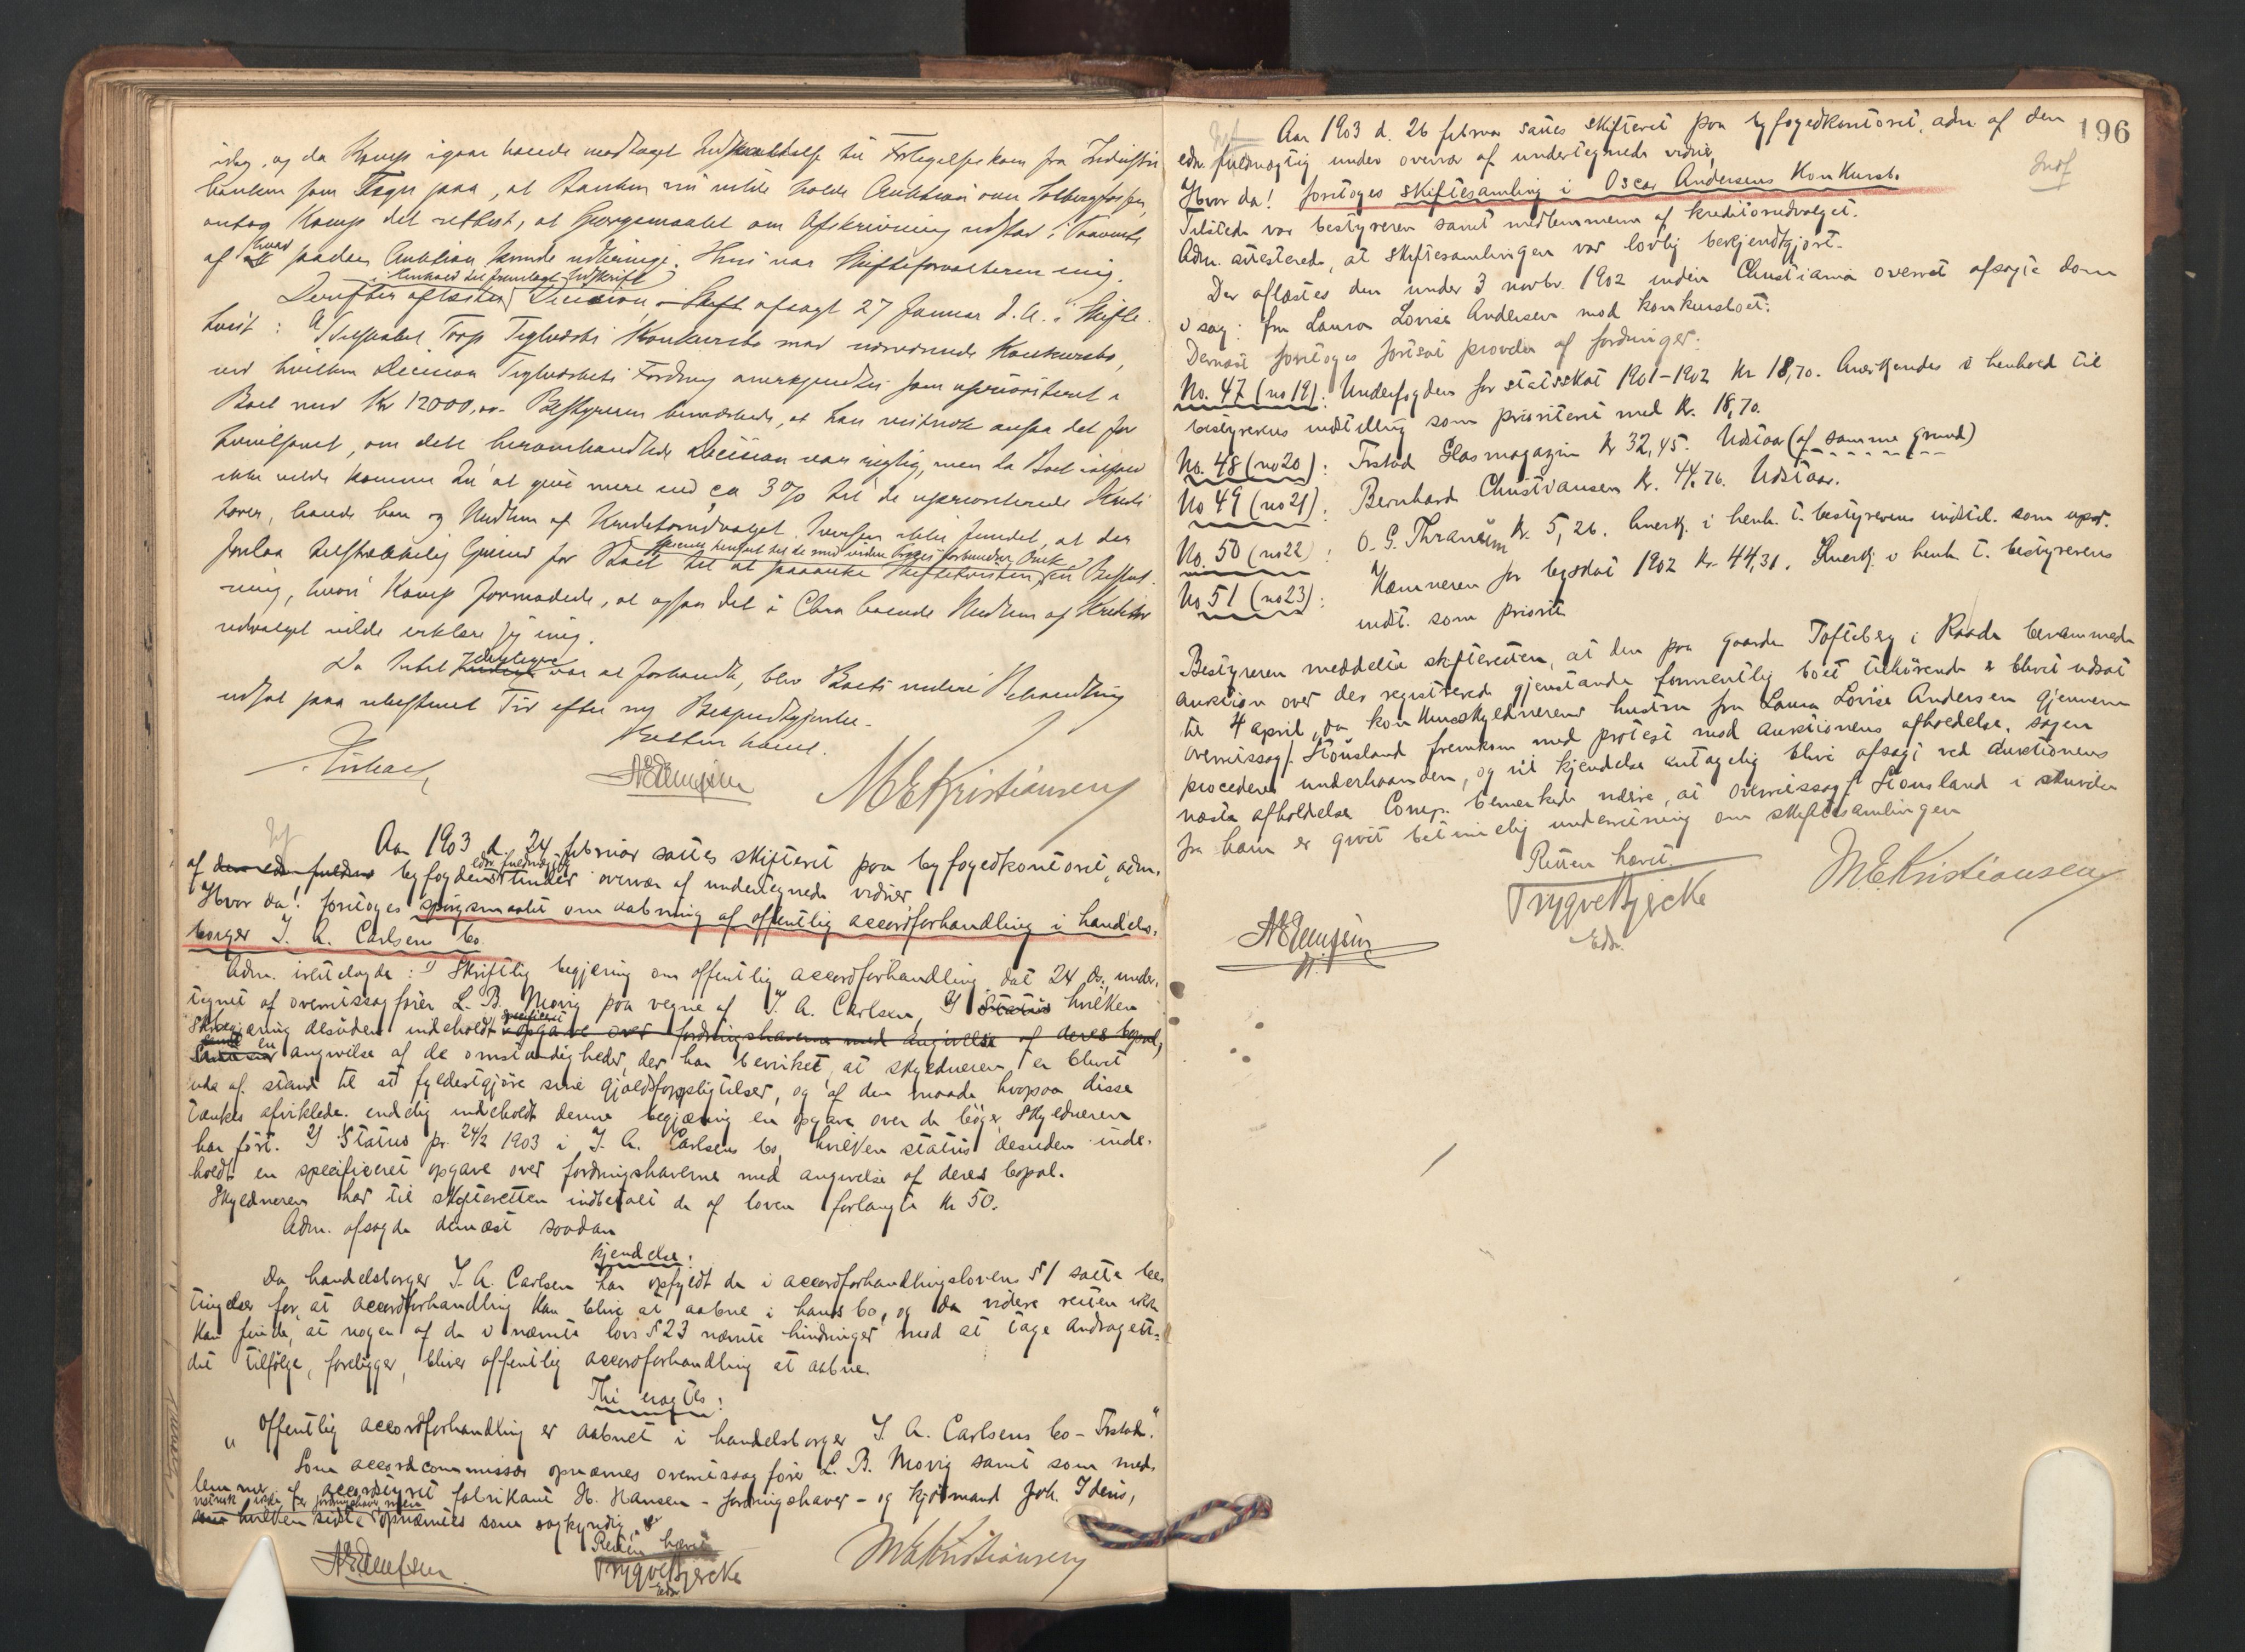 idag, og da Kamp igaar havde modtaget Indkaldelse til Forligelseskom. fra Industri
banken som Tegn paa, at Banken nu vilde holde Auktion over Solbergfossen,
antog Kamp det rettest, at Spørgsmaalet om Afskrivning udstod i Paavente
af hvad saadan Auktion kunde udbringe. Heri var Skifteforvalteren enig.
i Henhold til fremlagt Udskrift
Derefter oplæstes Decision, afsagt 27 Januar d. A. i Skifte-
tvist: A/Selskabet Torp Teglværks Konkursbo mod nærværende Konkursbo,
ved hvilken Decision Teglværkets Fordring anerkjendtes som uprioriteret i
Boet med Kr 12000,00. Bestyreren bemærkede, at han vistnok ansaa det for
tvivlsomt, om dette heromhandlede Decision var rigtig, men da Boet ialfald
ikke vilde komme til at give mere end ca 3 % til de uprioriterede Kredi-
torer, havde han og Medlem af Kreditorudvalget Iversen ikke fundet, at der
specielt henseet til de med videre Proces forbundne Omk.
forelaa tilstrækkelig Grund for Boet til at paaanke Skiftetvisten, en Beslut-
ning, hvori Kamp formodede, at ogsaa det i Chra boende Medlem af Kreditor
udvalget vilde erklære sig enig.
Da Intet yderligere var at forhandle, blev Boets videre Behandling
udsat paa ubestemt Tid efter ny Bekjendtgjørelse.
Retten hævet.
M E Kristiansen
Aar 1903 d. 24 februar sattes skifteret paa byfogedkontoret, adm.
af den edsv. fuldm. byfogdens edsv. fuldmægtig under overvær af undertegnede vidner,
Hvor da! foretoges spørgsmaalet om aabning af offentlig accordforhandling i handels-
borger J. A. Carlsens bo.
Adm. irettelagde: 1) Skriftlig begjæring om offentlig accordforhandling, dat 24 ds. under-
tegnet af overretssagfører L. B. Morig paa vegne af J. A. Carlsen, 2) Status hvilken
begjæring desuden indeholdt specificeret opgave over fordringshaverne med angivelse af deres bopæl,
en angivelse af de omstændigheder, der har bevirket, at skyldneren er blevet
ude af stand til at fyldestgjøre sine gjældsforpligtelser, og af den maade, hvorpaa disse
tænkes afviklede. endelig indeholdt denne begjæring en opgave over de bøger, skyldneren
har ført. 2) Status pr. 24/2 1903 i J. A. Carlsens bo, hvilken status desuden inde-
holdt en specificeret opgave over fordringshaverne med angivelse af deres bopæl.
Skyldneren har til skifteretten indbetalt de af loven forlangte kr 50.
Adm. afsagde dernæst saadan
kjendelse:
Da handelsborger J. A. Carlsen har opfyldt de i accordforhandlingslovens § 1 satte be-
tingelser for, at accordforhandling kan blive at aabne i hans bo, og da videre retten ikke
kan finde, at nogen af de i nævnte lovs § 23 nævnte hindringer mod at tage andragen-
det tilfølge, foreligger, bliver offentlig accordforhandling at aabne.
Thi eragtes:
"Offentlig accordforhandling er aabnet i handelsborger J. A. Carlsens bo - Frstad."
Som accordcommissær opnævnes overretssagfører L. B. Morig samt som med-
lemmer af accordstyret fabrikant H. Hansen - fordringshaver - og kjøbmand Joh. Idens,
vistnok ikke er fordringshaver, men
hvilken sidste opnævnes som sagkyndig.
Retten hævet
Trygve Bjercke
edsv.
M E Kristiansen
196
Aar 1903 d. 26 februar sattes skifteret paa byfogedkontoret, adm. af den
edsv. fuldmægtig under overvær af undertegnede vidner,
Hvor da! foretoges skiftesamling i Oscar Andersens Konkursbo
Tilstede var bestyreren samt medlemmerne af kreditorudvalget.
Adm. attesterede, at skiftesamlingen var lovlig bekjendtgjort.
Der oplæstes den under 3 novbr. 1902 inden Christiania overret afsagte dom
i sag: fru Laura Lovise Andersen mod konkursboet.
Dernæst foretoges fortsat prøvelse af fordringer:
No. 47 (no 19): Underfogden for statsskat 1901-1902 kr 18,70. Anerkjendes i henhold til
bestyrerens indstilling som prioriteret med kr. 18,70.
No. 48 (no 20): Frstad Glasmagazin kr 32,45. Udstaar (af samme grund)
No 49 (no 21): Bernhard Christiansen kr. 44,76. Udstaar.
No. 50 (no 22): O. G. Thranum kr. 5,26. Anerkj. i henh. t. bestyrerens indstil. som upr.
No 51 (no 23): Kæmneren for byskat 1902 kr. 44,31. Anerkj. i henh. t. bestyrerens
indst. som priorit.
Bestyreren meddelte skifteretten, at den paa gaarden Tofteberg i Raade berammede
auktion over der registrerede gjenstande formentlig boet tilhørende er blevet udsat
til 4 april, da konkursskyldnerens hustru fru Laura Lovise Andersen gjennem
overretssagf. Stousland fremkom med protest mod auktionens afholdelse. Sagen
procederes underhaanden, og vil kjendelse antagelig blive afsagt ved auktionens
næste afholdelse. Comp. bemærkede videre, at overretssagf. Stousland i skrivelse
fra ham er givet betimelig underretning om skiftesamlingen
Retten hævet.
Trygve Bjercke
edsv.
M E Kristiansen